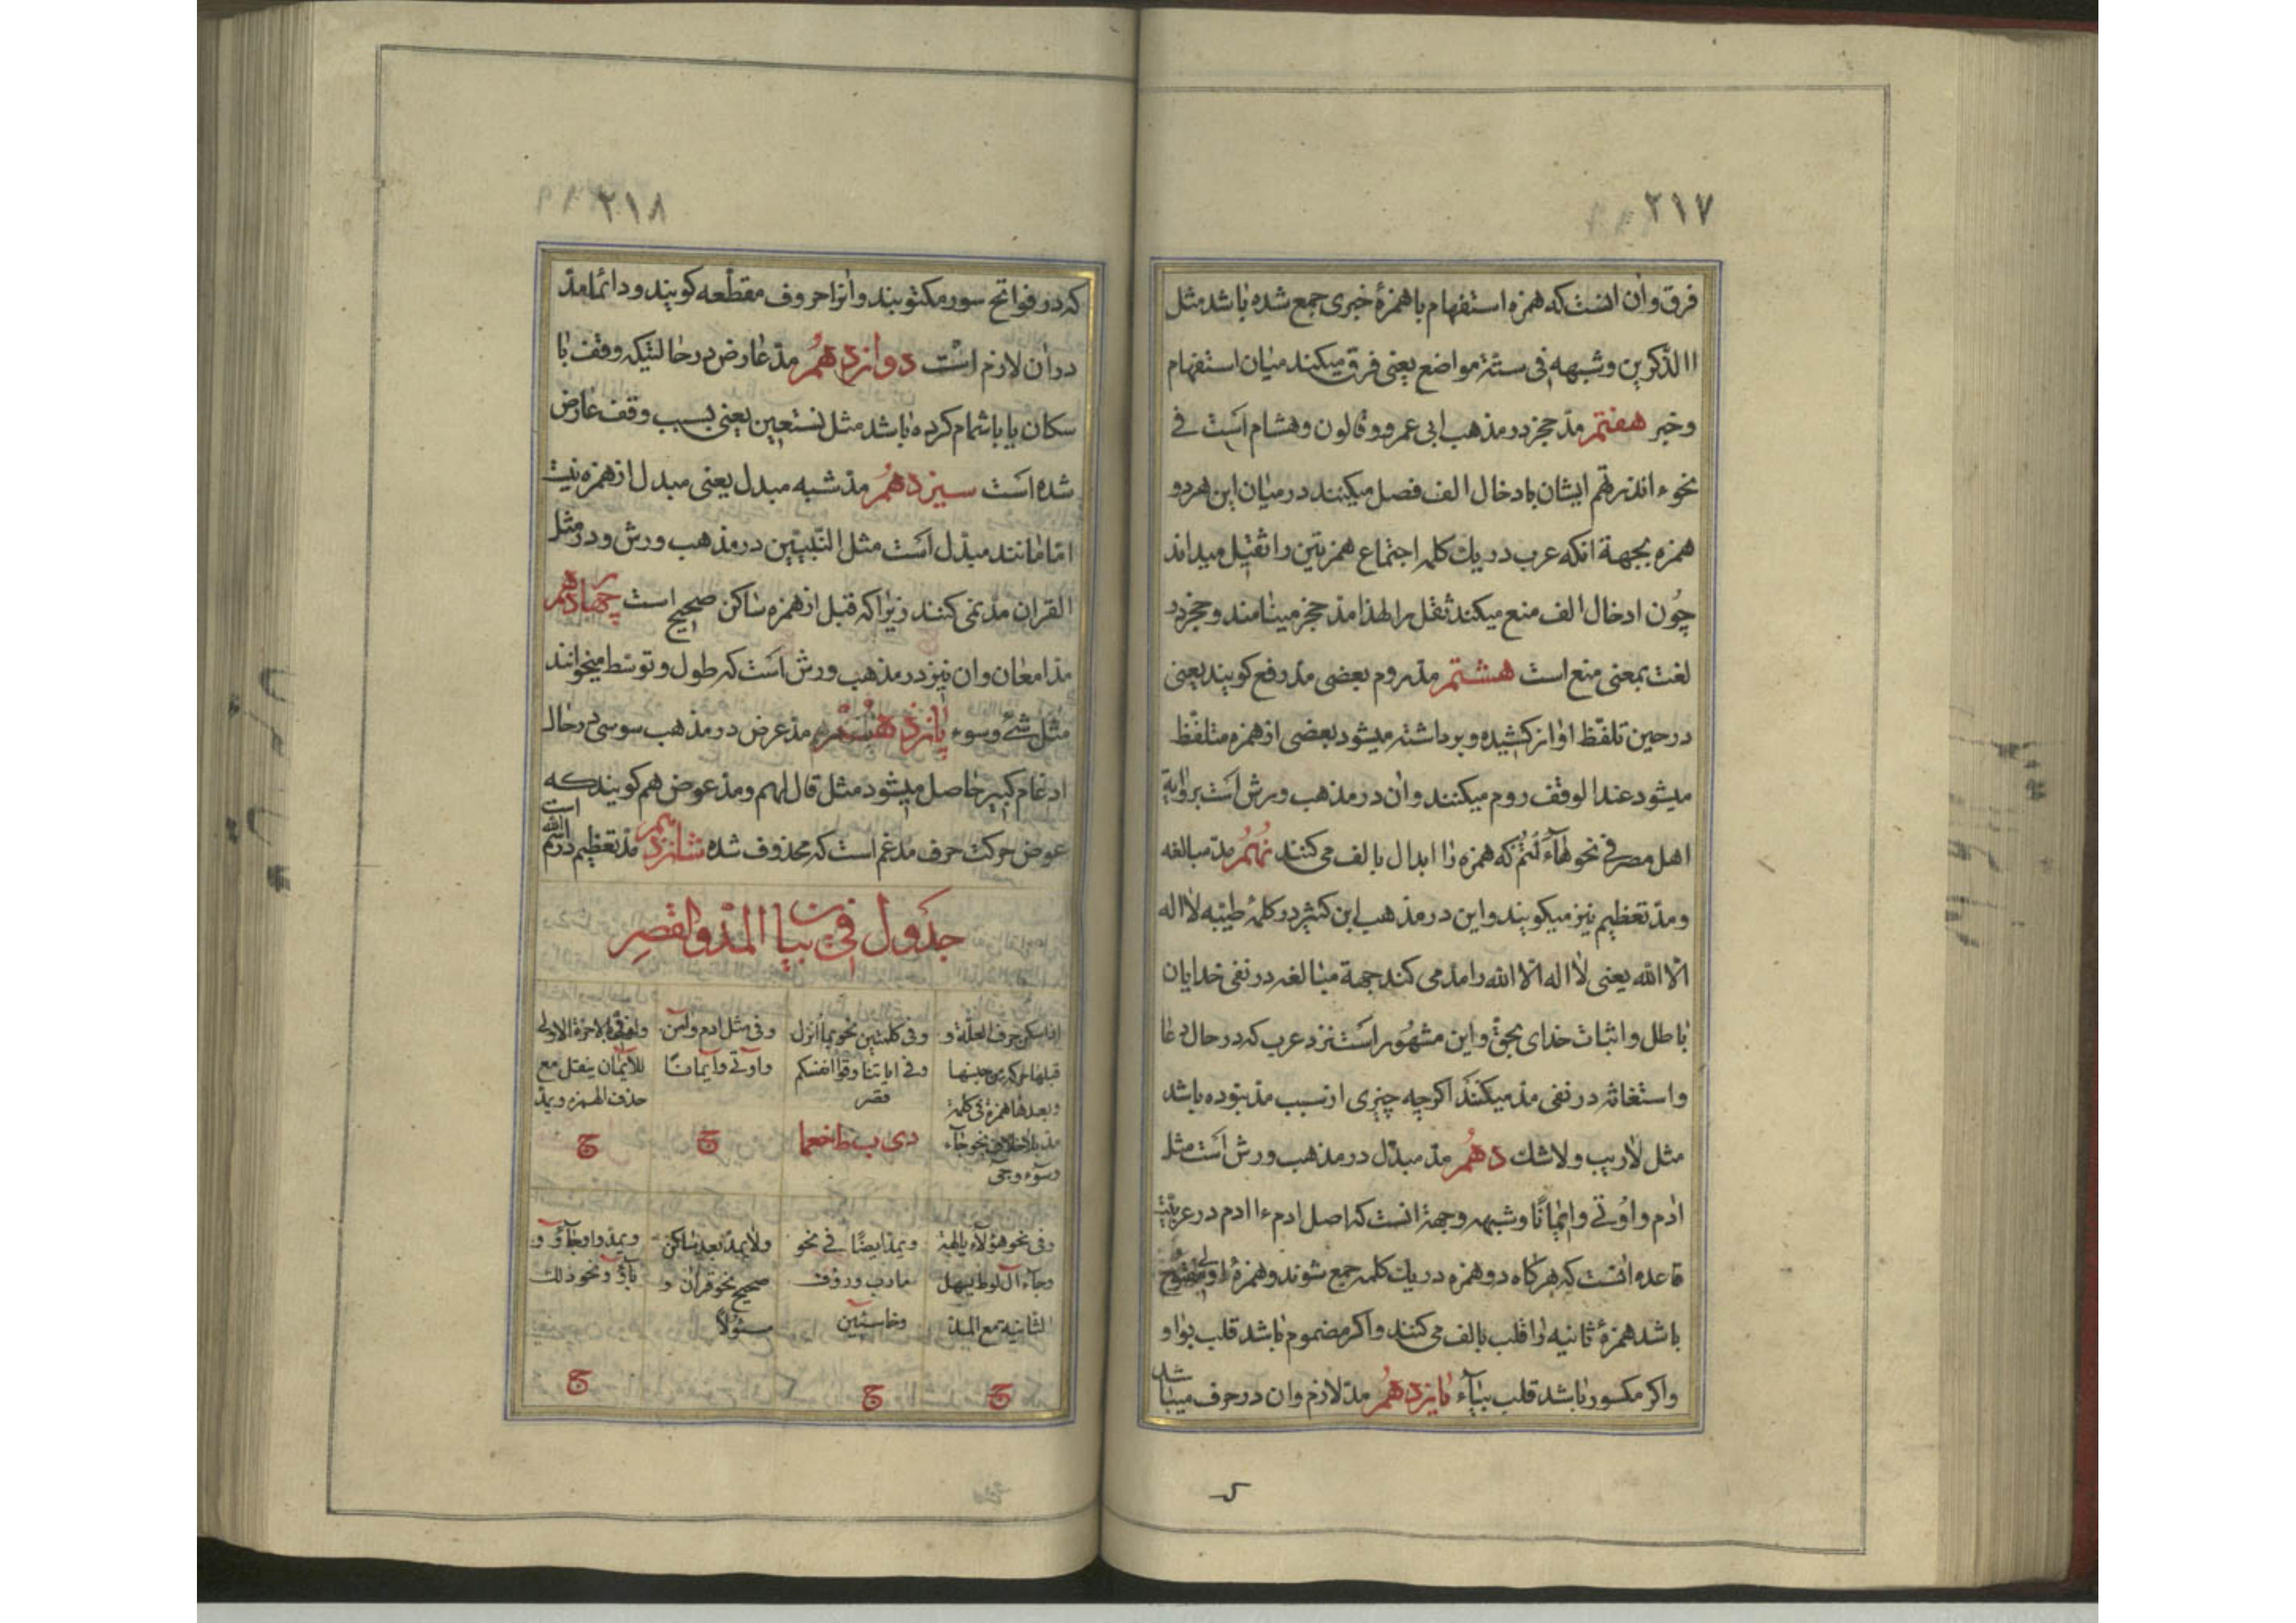 ۲۱۷
فرق و آن انست که همزه استفهام با همزهٔ خبری جمع شده باشد مثل
االذکرین و شبهه فی ستة مواضع یعنی فرق میکند میان استفهام
و خبر هفتم مد حجز در مذهب ابی عمرو و قالون و هشام است فی
نحو ءانذرتهم ایشان بادخال الف فصل میکنند در میان این هر دو
همزه بجهة انکه عرب در یك کلمه اجتماع همزتین را ثقیل میداند
چون ادخال الف منع میکند ثقل را لهذا مد حجز مینامند و حجز در
لغت بمعنی منع است هشتم مد روم بعضی مد رفع کویند یعنی
در حین تلفظ اواز کشیده و برداشته میشود بعضی از همزه متلفظ
میشود عند الوقف روم میکنند و ان در مذهب ورش است بروایة
اهل مصر فی نحو هاءنتم که همزه را ابدال بالف می کنند نهم مد مبالغه
و مد تعظیم نیز میکویند و این در مذهب ابن کثیر در کلمهٔ طیبه لا اله
الا الله یعنی لا اله الا الله را مد می کند جهة مبالغه در نفی خدایان
باطل و اثبات خدای بحق و این مشهور است نزد عرب که در حال دعا
و استغاثه در نفی مد میکنند اکرچه چیزی از سبب مد نبوده باشد
مثل لاریب و لاشك دهم مد مبدل در مذهب ورش است مثل
ادم و اوتی و ایمانا و شبهه و جهة انست که اصل ادم ءاادم در عربیت
قاعده انست که هرکاه دو همزه در یك کلمه جمع شوند و همزهٔ اولی مفتوح
باشد همزهٔ ثانیه را قلب بالف می کنند و اکر مضموم باشد قلب بواو
و اکر مکسور باشد قلب بیاء یازدهم مد لازم و ان در حرف میباشد
۲۱۸
که در فواتح سور مکتوبند و انرا حروف مقطعه کویند و دائما مد
در ان لازم است دوازدهم مد عارض در حالتیکه وقف با
سکان یا باشمام کرده باشد مثل نستعین یعنی بسبب وقف عارض
شده است سیزدهم مد شبه مبدل یعنی مبدل از همزه نیست
اما مانند مبدل است مثل النبیین در مذهب ورش و در مثل
القران مد نمی کنند زیرا که قبل از همزه ساکن صحیح است چهاردهم
مد امعان و ان نیز در مذهب ورش است که طول و توسط میخوانند
مثل شئ و سوء پانزدهم مد عرض در مذهب سوسی در حال
ادغام کبیر حاصل میشود مثل قال لهم و مد عوض هم کویند که
عوض حرکت حرف مدغم است که محذوف شده شانزدهم مد تعظیم در اسم الله است
جدول فی بیان المد و القصر
اذا سکن حرف العلة و
قبلها حرکة من جنسها
و بعدها همزة فی کلمة
مد بلا خلاف نحو جاء
و سوء و جئ
و فی کلمتین نحو بما انزل
و فی ایاتنا و قوا انفسکم
قصر
دی ب ط اخعا
و فی مثل ادم و امن
و اوتی و ایمانا
ج
للایمان ینقل مع
حذف الهمزه و یمد
ج
و فی نحو هؤلاء یالهة
و جاء ال لوط یسهل
الثانیه مع المد
ج
و یمد ایضا فی نحو
مارب و رؤف
و خاسئین
ج
ولا یمد بعد ساکن
صحیح نحو قران و
مسئولا
باؤ و نحو ذلك
ج